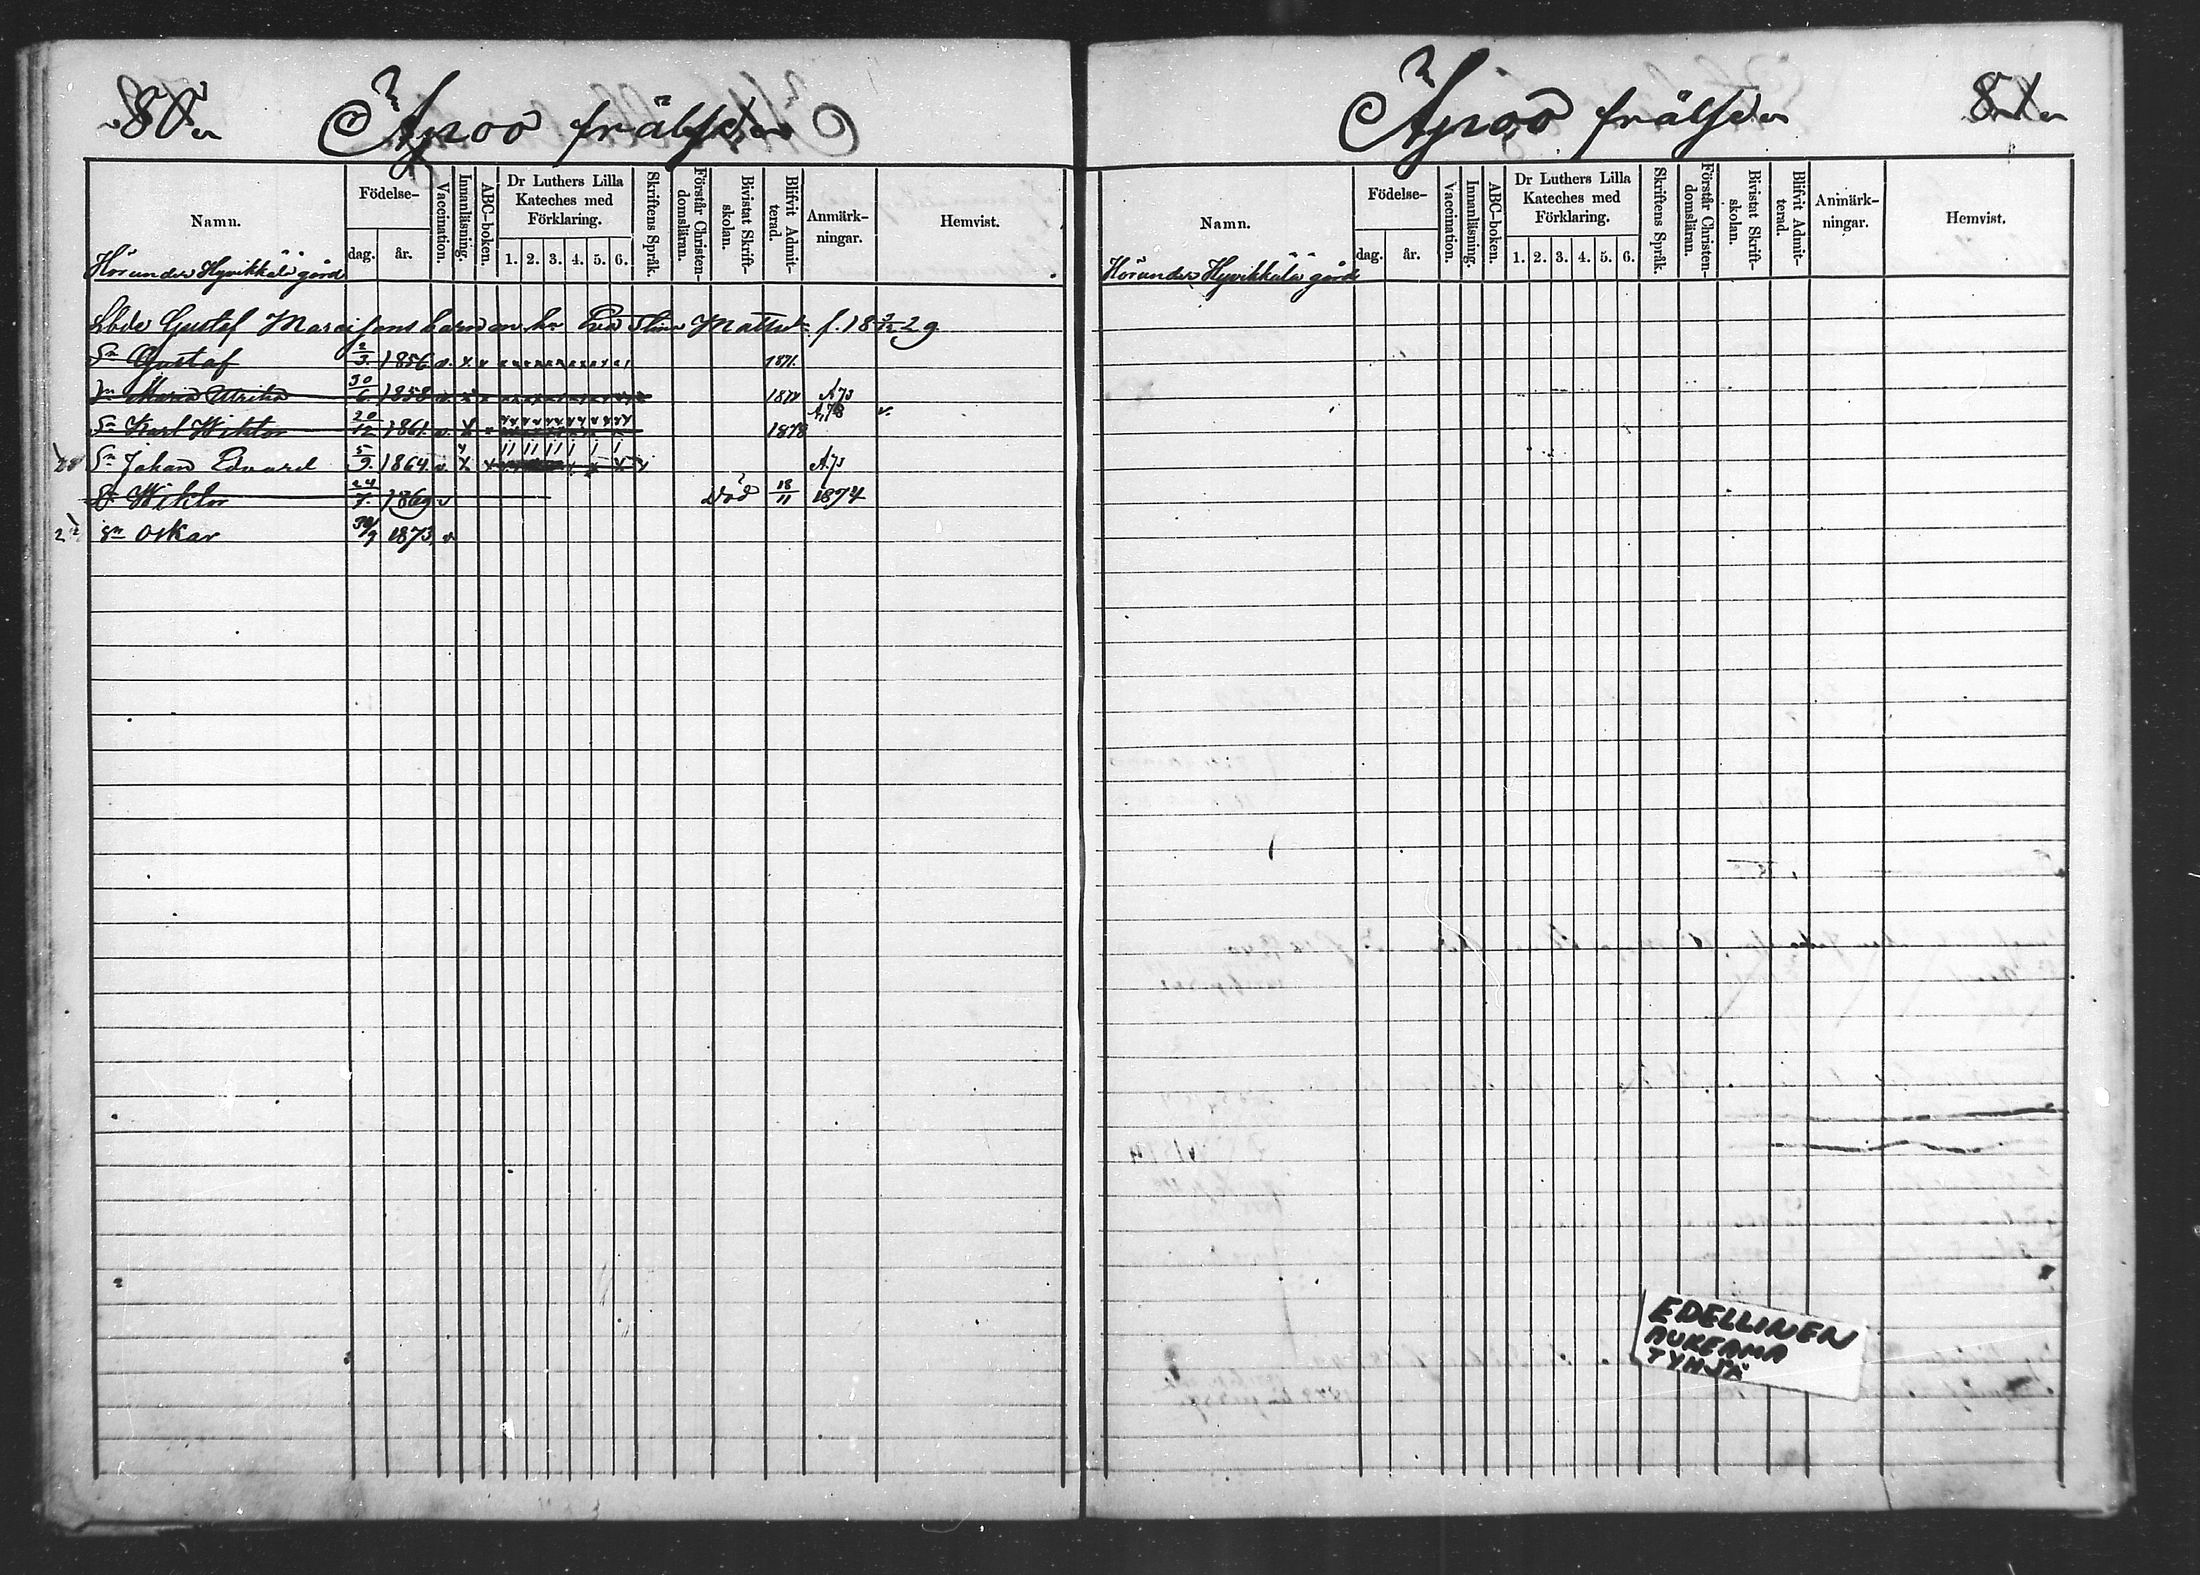 80.
Äpoo frälse
Namn.
Födelse-
dag.
år.
Vaccination.
Innanläsning.
ABC-boken.
Dr Luthers Lilla
Kateches med
Förklaring.
1. 2. 3. 4. 5. 6.
Skriftens Språk.
Förstår Christen-
domsläran.
Bivistat Skrift-
skolan.
Blifvit Admit-
terad.
Anmärk-
ningar.
Hemvist.
Hör under Hyvikkälä gård
Gustaf barn Stina Matsdr f. 18 29
Sn Gustaf 2/3. 1856 v. x 1871.
Dr Maria Ulrika 30/6. 1858 1874 A73
A,78 v.
Sn Karl Wiktor 20/12 1861. v. x 1878
Sn Johan Edvard 5/9. 1864. v. x A73
Sn Wiktor 24/7. 1869 v Död 18/11 1874
Sn Oskar 30/9 1873, v
Äpoo frälse
81
Namn.
Födelse-
dag.
år.
Vaccination.
Innanläsning.
ABC-boken.
Dr Luthers Lilla
Kateches med
Förklaring.
1. 2. 3. 4. 5. 6.
Skriftens Språk.
Förstår Christen-
domsläran.
Bivistat Skrift-
skolan.
Blifvit Admit-
terad.
Anmärk-
ningar.
Hemvist.
Hör under Hyvikkälä gård
EDELLINEN
AUKEAMA
TYHJÄ